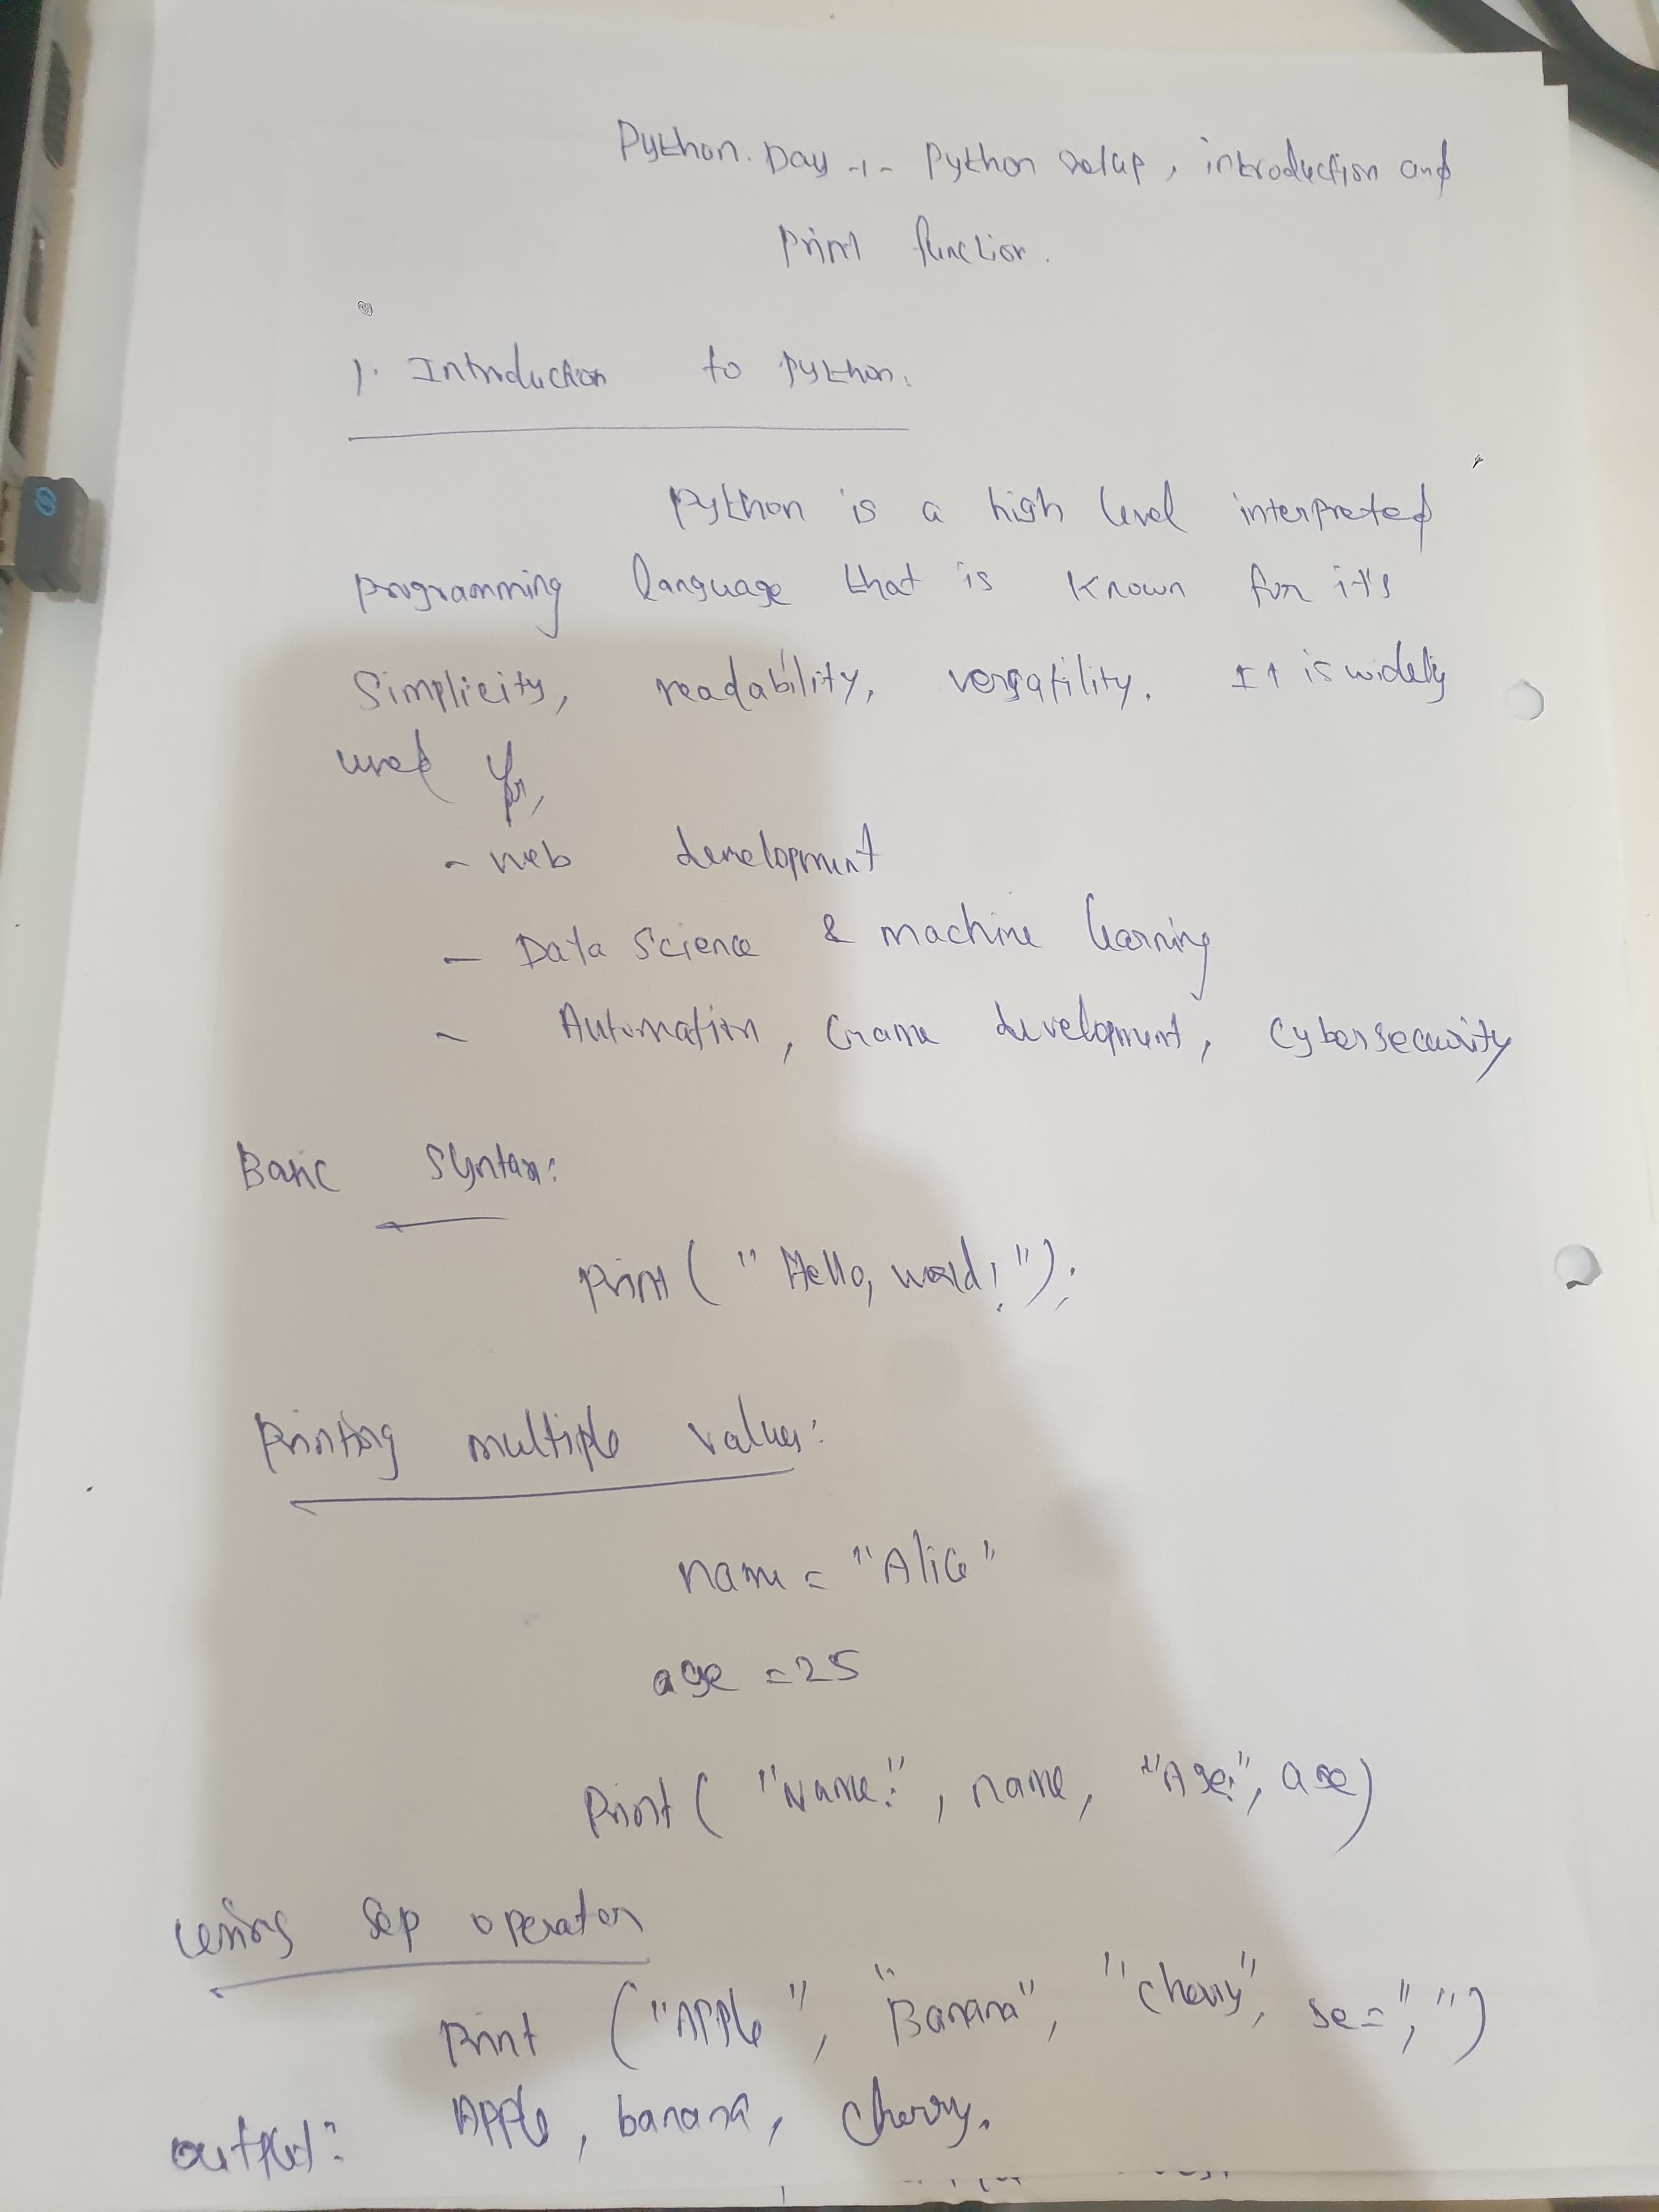 Python. Day -1- Python setup, introduction and
Print function.
1. Introduction to python.
Python is a high level interpreted
programming language that is known for it's
Simplicity, readability, versatility. It is widely
used for,
- web development
- Data Science & machine learning
- Automation, Game development, Cybersecurity
Basic Syntax:
Print ("Hello, world!");
Printing multiple values:
name = "Alice"
age = 25
Print ( "Name:", name, "Age:", age)
Using Sep operator
Print ("Apple", "Banana", "Cherry", se=",")
output: Apple, banana, cherry.